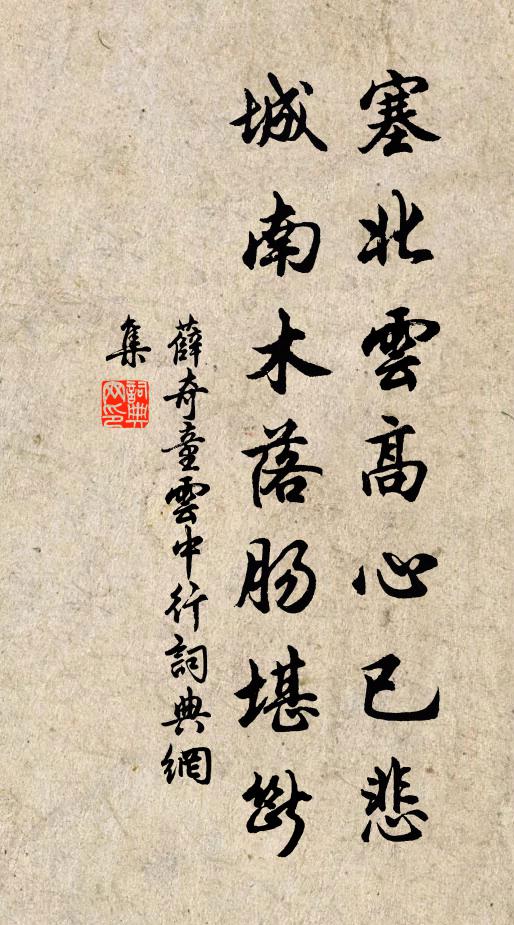 塞北雲高心已悲
城南木落腸堪斷
薛奇童雲中行詞典網
集
詞典
网印